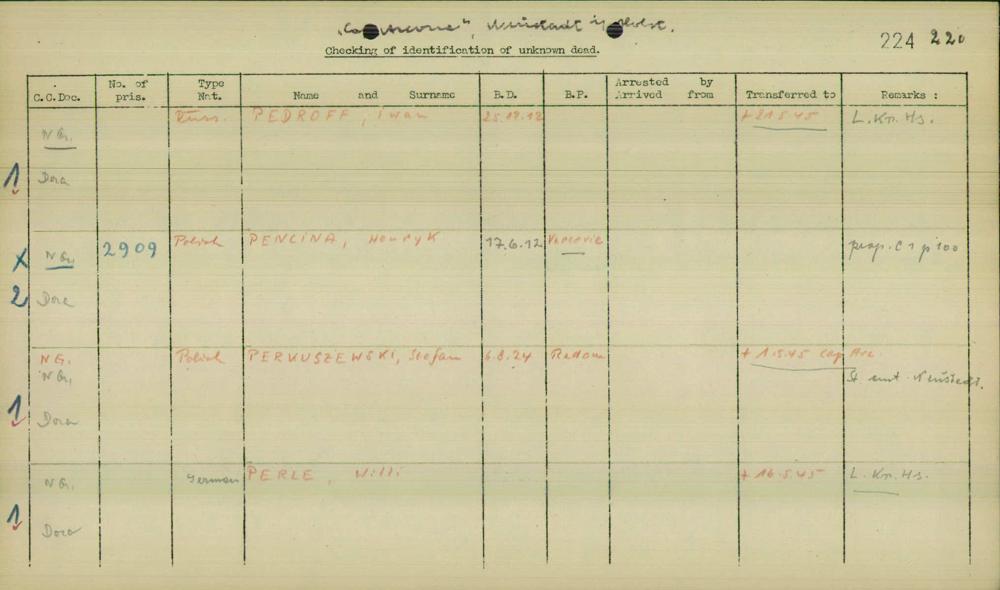 "Cap Arcona", Neustadt i/Holst.
224 220
Checking of identification of unknown dead.
C.C.Doc. No. of pris. Type Nat. Name and Surname B.D. B.P. Arrested by Arrived from Transferred to Remarks :
Russ. PEDROFF, Iwan 25.12.12 + 21.5.45 L. Kr. Hs.
N G.
1 Dora
X N G. 2909 Polish PENCINA, Henryk 17.6.12
2 Dora
N G. Polish PERKUSZEWSKI, Stefan 6.8.24 Radom + 1.5.45 Cap Arc.
N G. St. amt. Neustadt.
1 Dora
N G. German PERLE, Willi + 16.5.45 L. Kr. Hs.
1 Dora